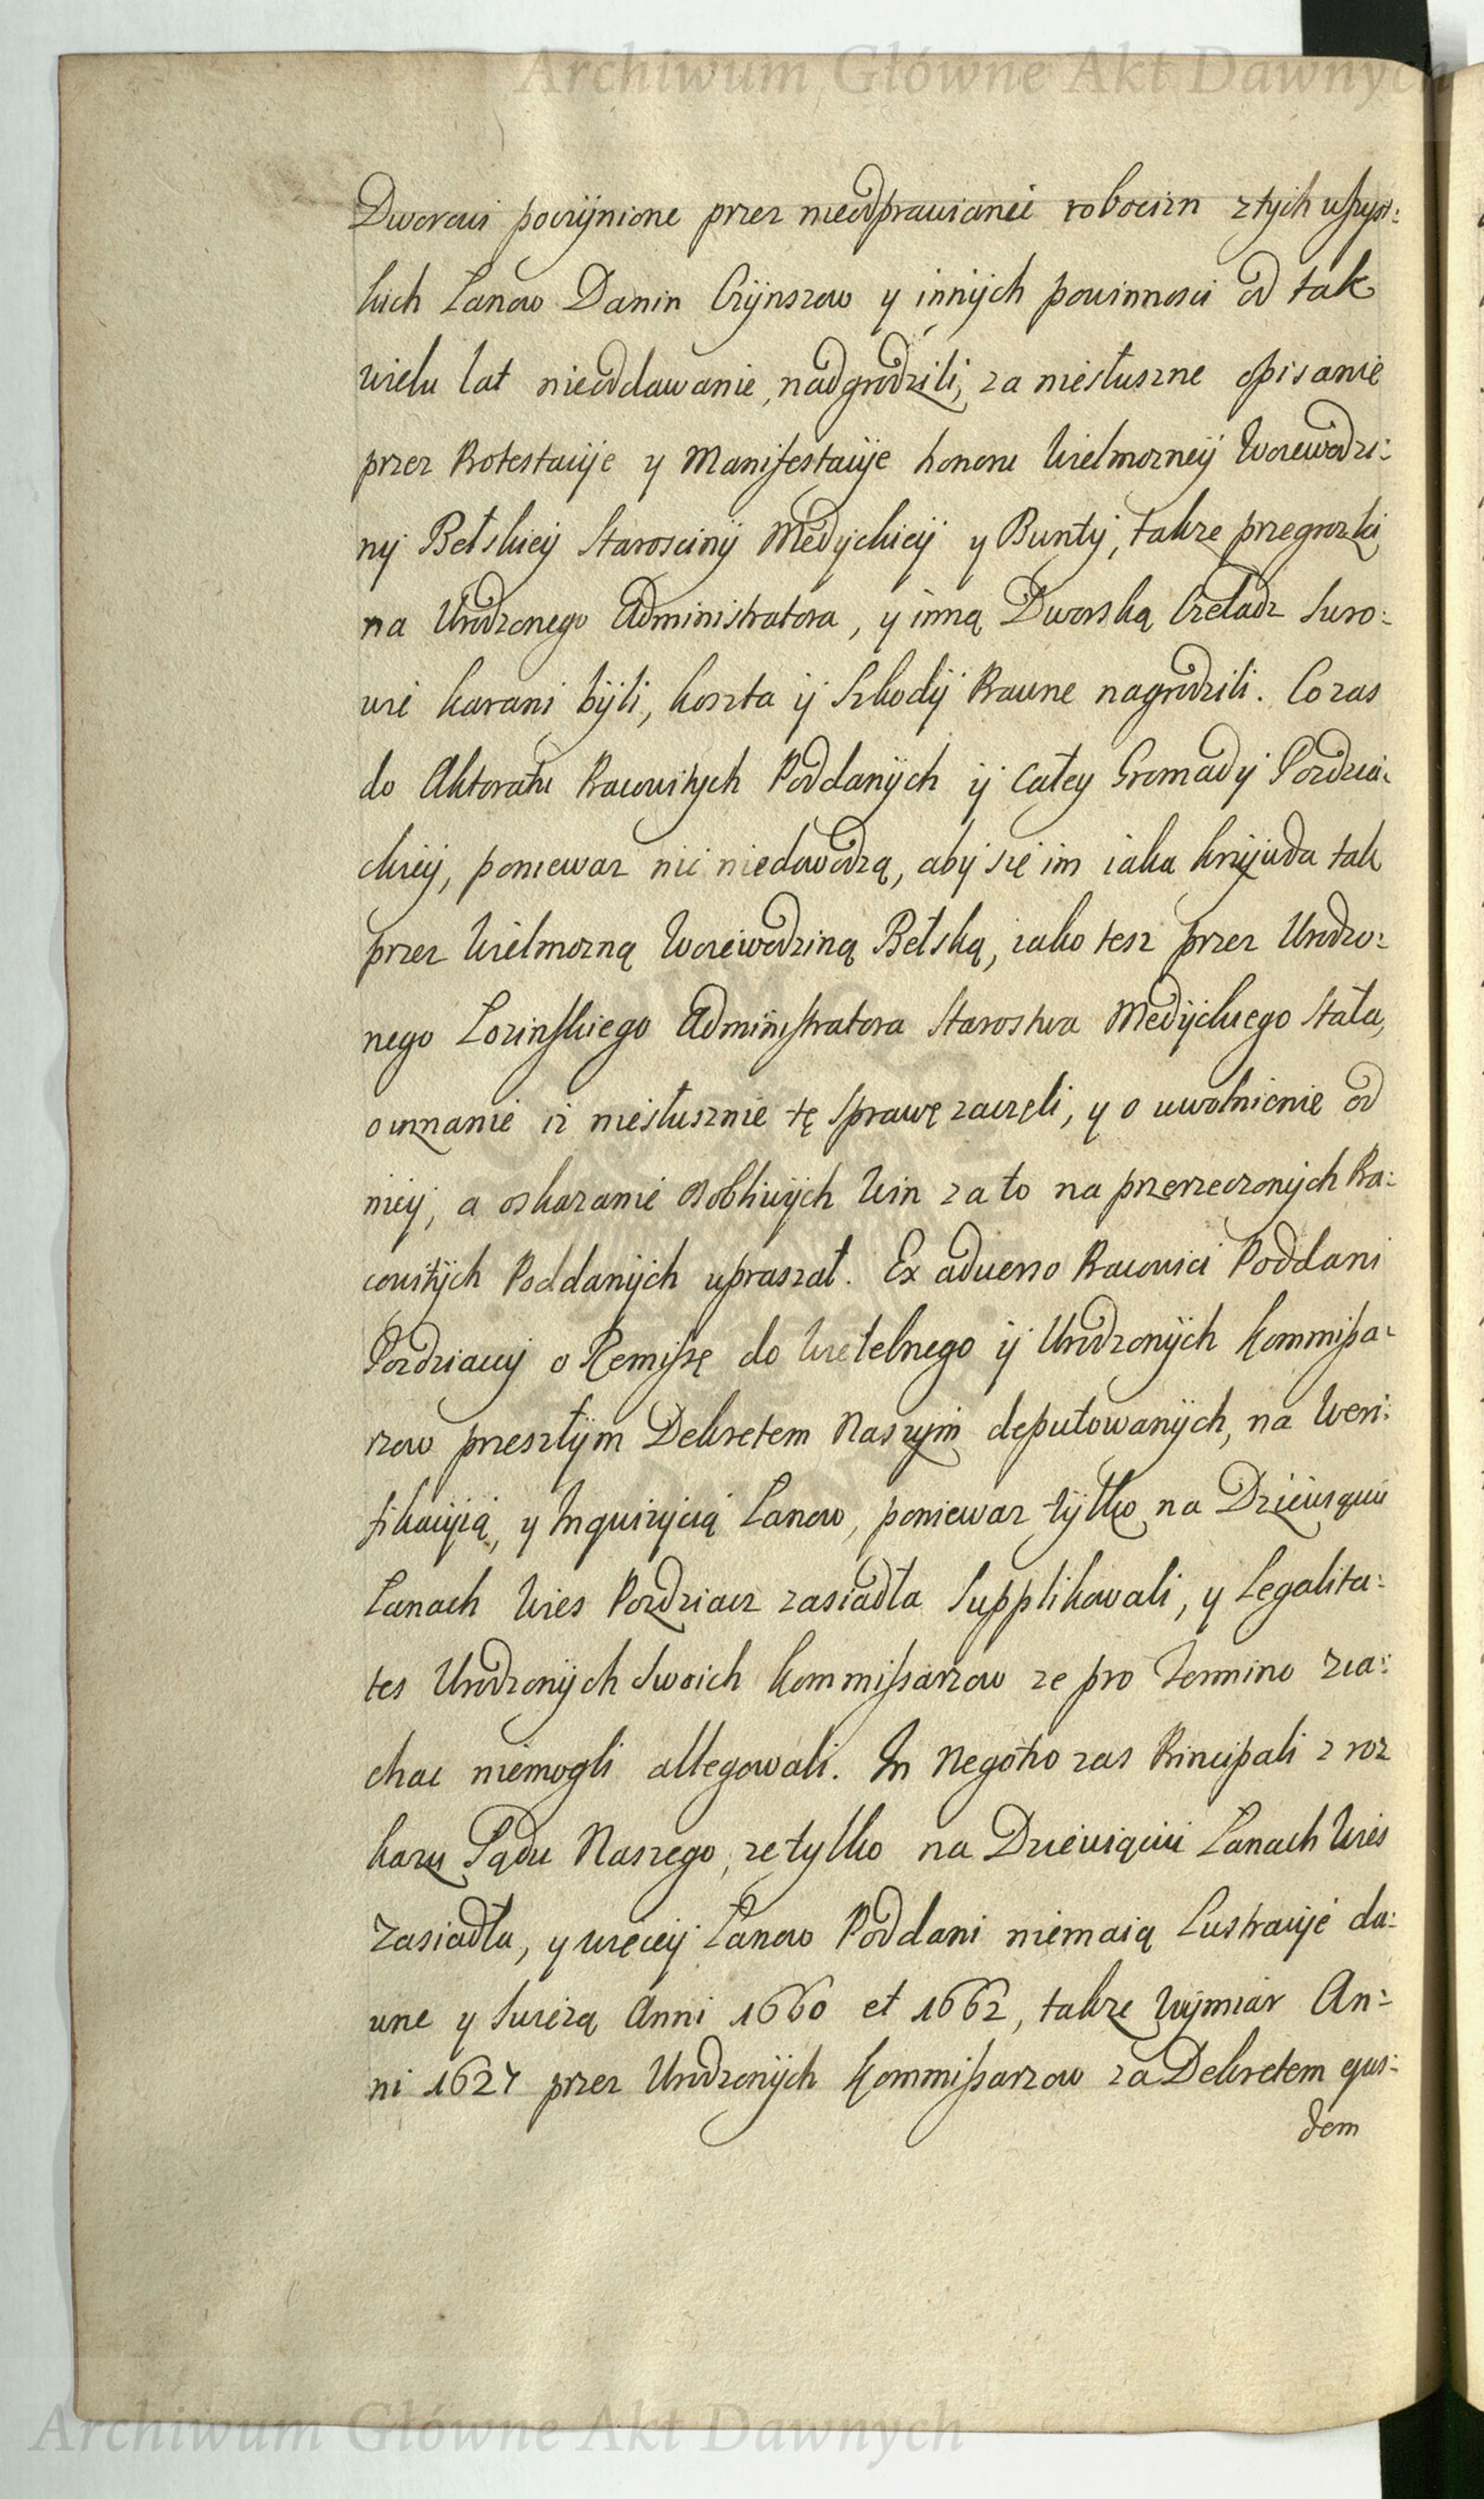 Archiwum Główne Akt Dawnych
Dworowi poczÿnione przez nieodprawianié robocizn ztÿch wszÿst:
kich Łanow Danin Czÿnszow y innÿch powinnosci od tak
wielu lat nieoddawanie, nadgrodzili, za niesłuszne opisanie
przez Protestacÿe y Manifestacÿe honoru Wielmozneÿ Woiewodzi:
nÿ Bełskieÿ Staroscinÿ Medÿckieÿ y Buntÿ, takze przegrozki
na Urodzonego Administratora, y inną Dworską Czeladz Suro:
wie karani bÿli, koszta ÿ Szkodÿ Prawne nagrodzili. Co zas
do Aktoratu Pracowitÿch Poddanÿch ÿ całey Gromadÿ Pozdzia:
ckieÿ, poniewaz nic niedowodzą, abÿ się im iaka krzÿwda tak
przez Wielmozną Woiewodziną Bełską, iako tesz przez Urodzo:
nego Łozinskiego Administratora Starostwa Medÿckiego stała,
o uznanie iz niesłusznie tę Sprawę zaczęli, y o uwolnienie od
nieÿ, a oskazanie osobliwÿch Win za to na przerzeczonÿch Pra:
cowitÿch Poddanÿch upraszał. Ex adverso Pracowici Poddani
Pozdziaccÿ o Remissę do Wielebnego ÿ Urodzonÿch Kommissa:
rzow przeszłÿm Dekretem Naszÿm deputowanÿch, na Weri:
fikacÿią, y Inquizÿcią Łanow, poniewaz tÿlko na Dziewiąciu
Łanach Wies Pozdziacz zasiadła Supplikowali, y Legalita:
tes Urodzonÿch Swoich Kommissarzow ze pro Termino zia:
chac niemogli allegowali. In Negotio zas Principali z roz
kazu Sądu Naszego, ze tylko na Dziewiąciu Łanach Wies
Zasiadła, y więceÿ Łanow Poddani niemaią Lustracÿe da:
wne y Swiezą Anni 1660 et 1662, takze Wÿmiar An:
ni 1627 przez Urodzonÿch Kommissarzow za Dekretem ejus:
dem
Archiwum Główne Akt Dawnych